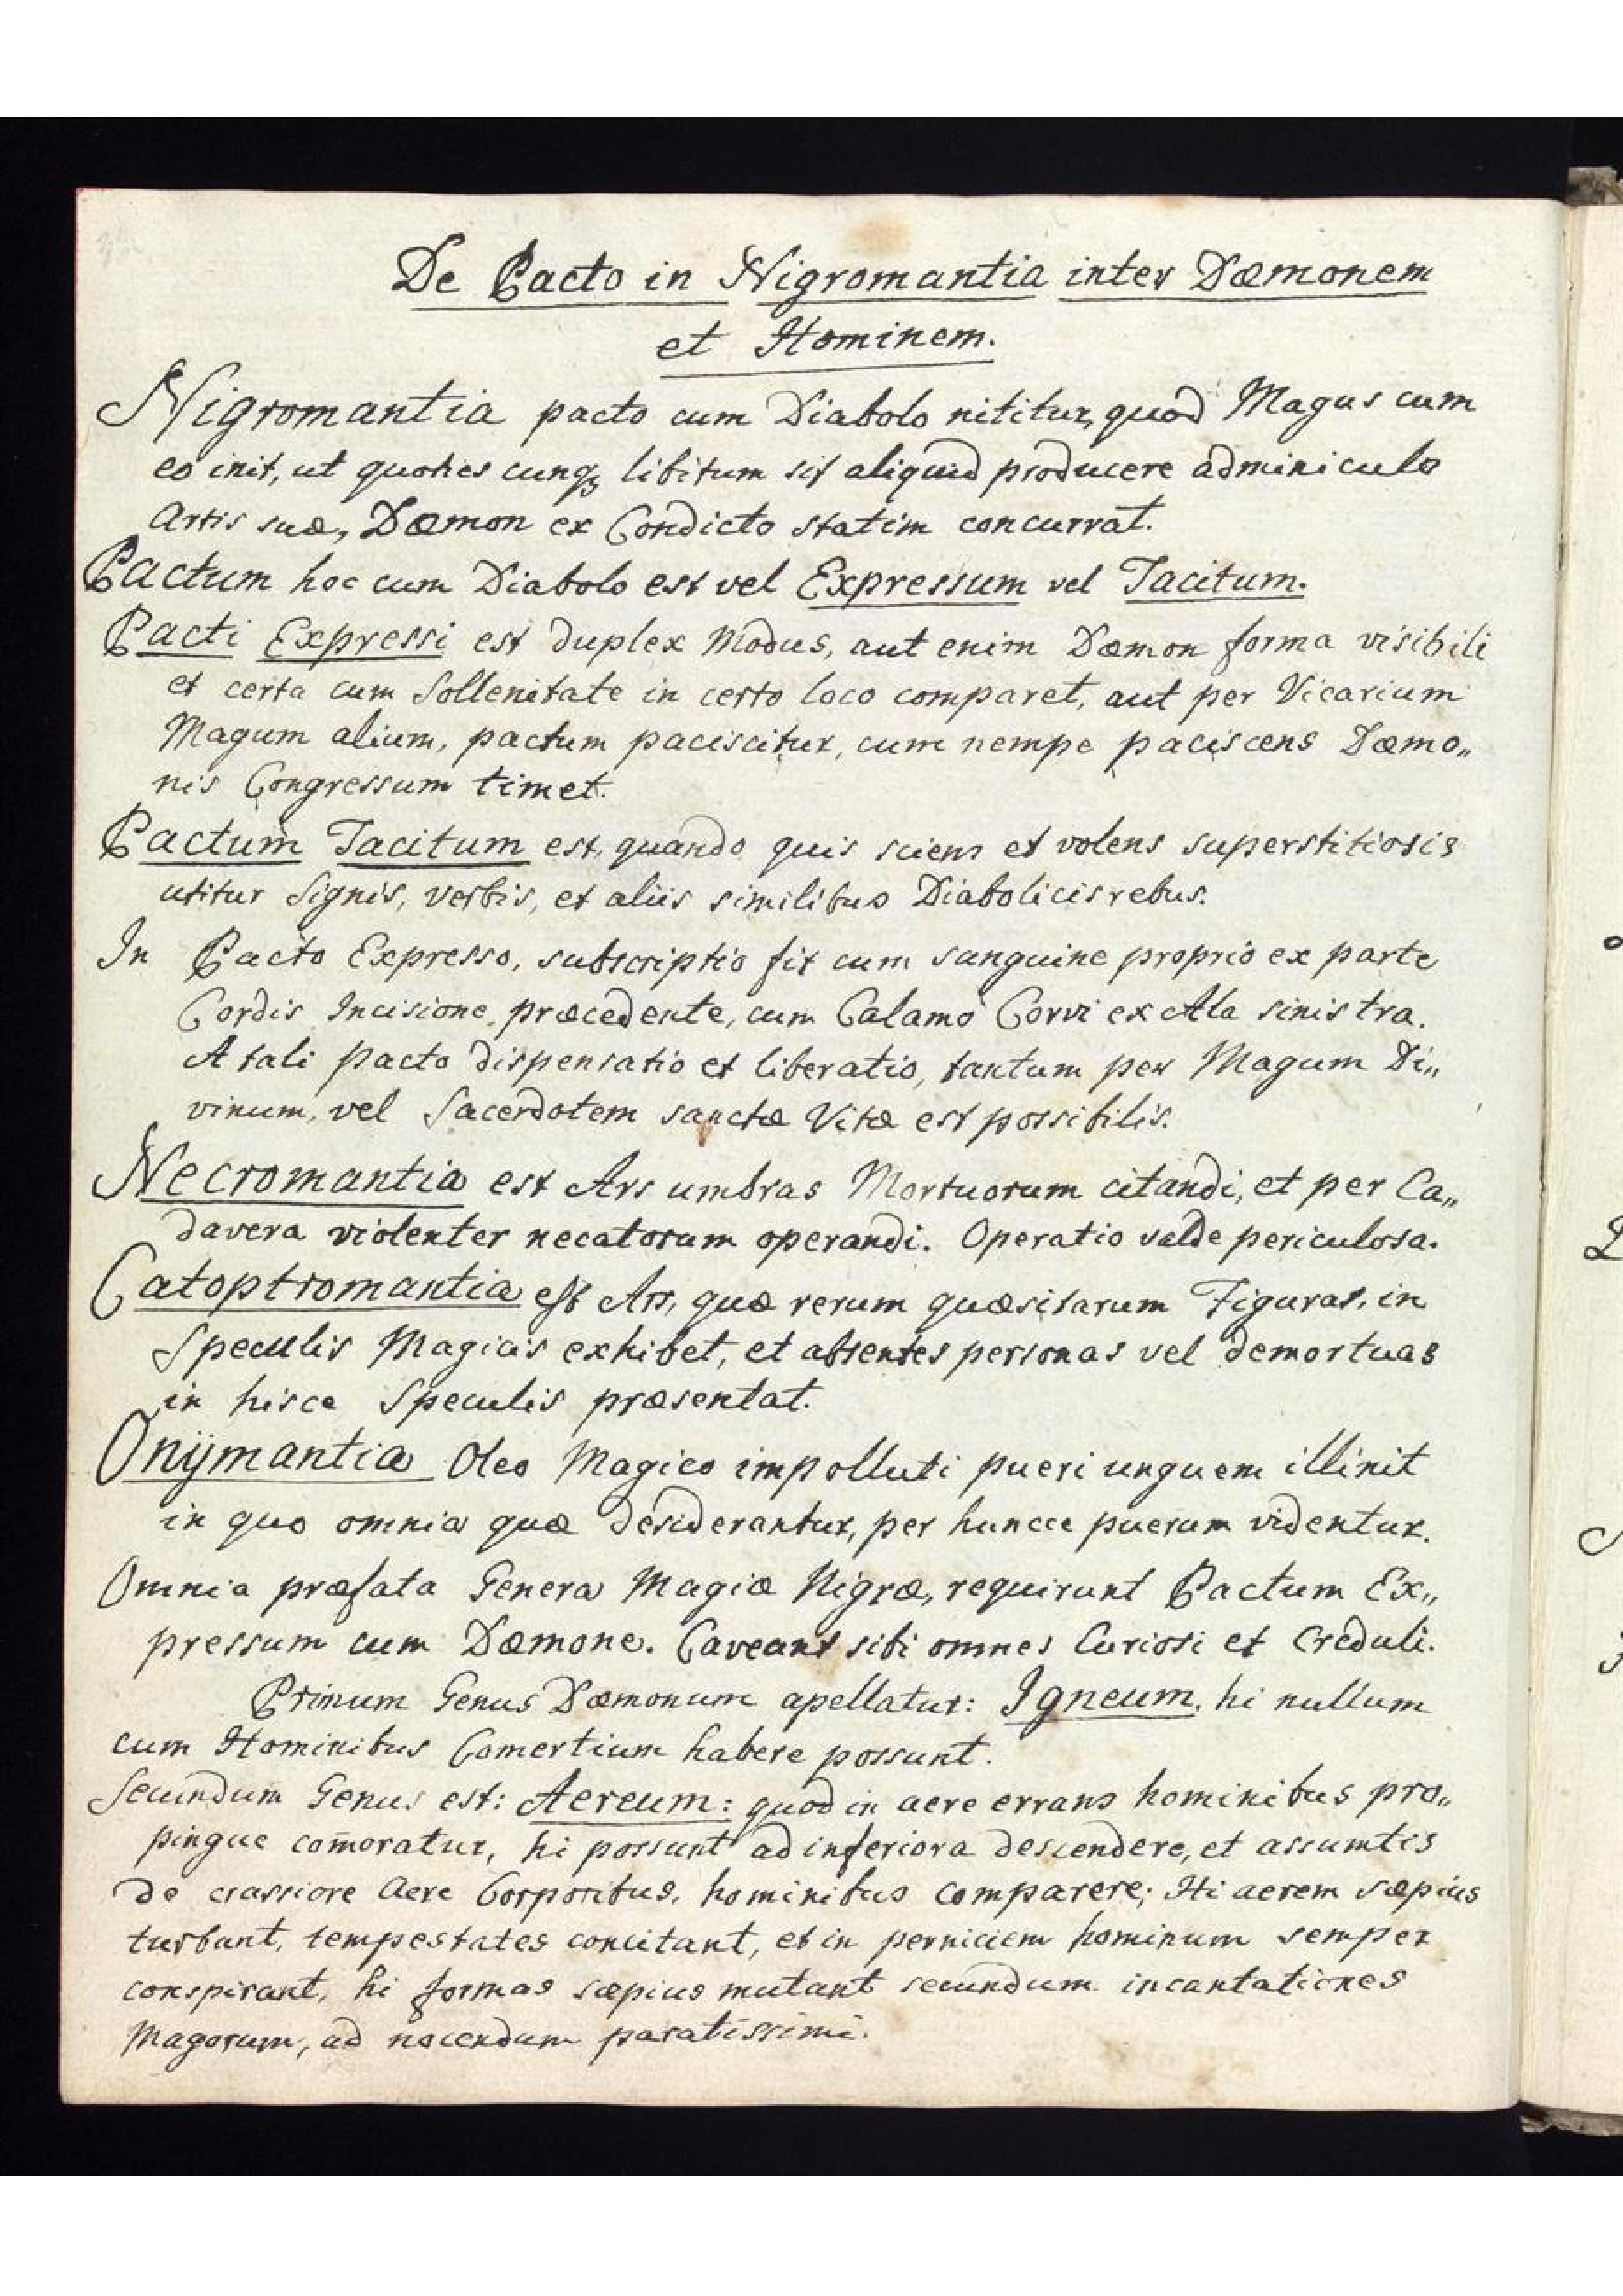 De Pacto in Nigromantia inter Dæmonem
et Hominem.
Nigromantia pacto cum Diabolo nititur, quod Magus cum
eo init, ut quoties cunqꝫ libitum sit aliquid producere adminiculo
Artis suæ, Dæmon ex Condicto statim concurrat.
Pactum hoc cum Diabolo est vel Expressum vel Tacitum.
Pacti Expressi est duplex Modus, aut enim Dæmon forma visibili
et certa cum Sollenitate in certo loco comparet, aut per Vicarium
Magum alium, pactum paciscitur, cum nempe paciscens Dæmo„
nis Congressum timet.
Pactum Tacitum est, quando quis sciens et volens superstitiosis
utitur Signis, verbis, et aliis similibus Diabolicis rebus.
In Pacto Expresso, subscriptio fit cum sanguine proprio ex parte
Cordis Incisione præcedente, cum Calamo Corvi ex Ala sinistra.
A tali pacto dispensatio et liberatio, tantum per Magum Di„
vinum, vel Sacerdotem sanctæ Vitæ est possibilis.
Necromantia est Ars umbras Mortuorum citandi, et per Ca„
davera violenter necatorum operandi. Operatio valde periculosa.
Catoptromantia est Ars, quæ rerum quæsitarum Figuras, in
Speculis Magicis exhibet, et absentes personas vel demortuas
in hisce Speculis præsentat.
Onÿmantia Oleo Magico impolluti pueri unguem illinit
in quo omnia quæ desiderantur, per huncce puerum videntur.
Omnia præfata Genera Magiæ Nigræ, requirunt Pactum Ex„
pressum cum Dæmone. Caveant sibi omnes Curiosi et Creduli.
Primum Genus Dæmonum apellatur: Igneum, hi nullum
cum Hominibus Comertium habere possunt.
Secundum Genus est: Aereum: quod in aere errans hominibus pro„
pinque com̄oratur, hi possunt ad inferiora descendere, et assumtis
de crassiore Aere Corporibus, hominibus comparere; Hi aerem sæpius
turbant, tempestates concitant, et in perniciem hominum semper
conspirant, hi formas sæpius mutant secundum incantationes
Magorum, ad nocendum paratissimi.